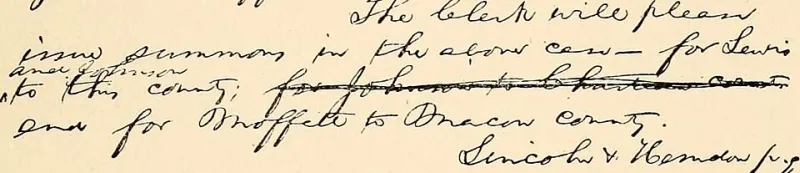 The Clerk will please
issue summons in the above case — for Lewis
and Johnson
to this county; for Johnson to Christian county
and for Moffett to Macon county.
Lincoln & Herndon p.q.